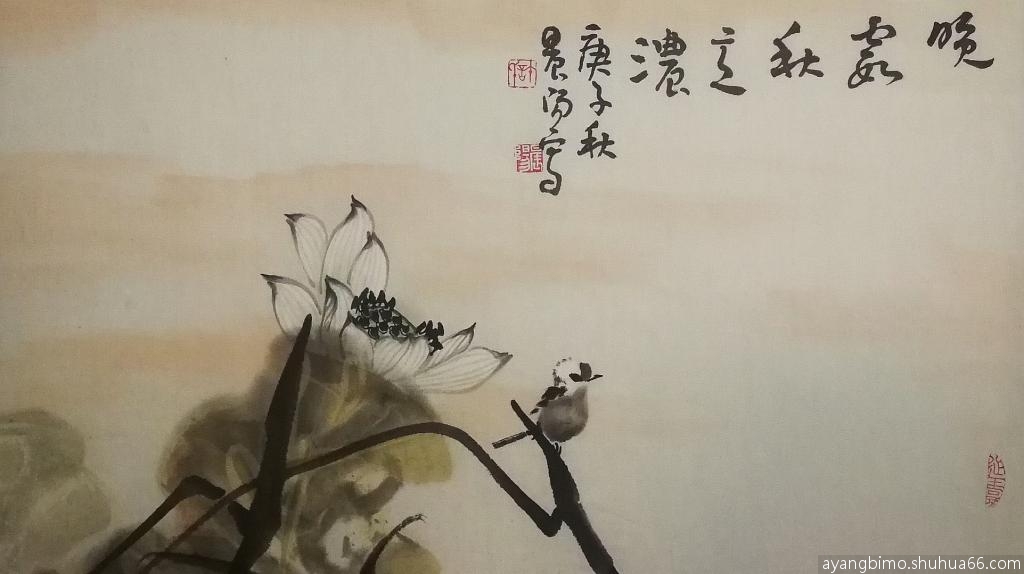 晚霞秋意濃
庚子秋
晨陽寫
ayangbimo.shuhua66.com